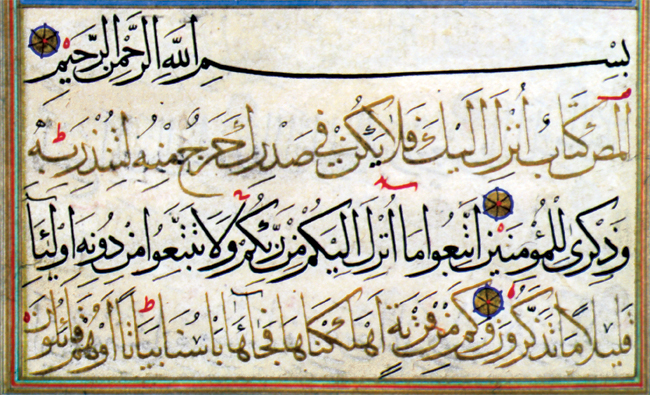 بِسْمِ اللهِ الرَّحْمنِ الرَّحِيمِ
المص كِتَابٌ أُنْزِلَ إِلَيْكَ فَلَا يَكُنْ فِي صَدْرِكَ حَرَجٌ مِنْهُ لِتُنْذِرَ بِهِ
وَذِكْرَى لِلْمُؤْمِنِينَ اتَّبِعُوا مَا أُنْزِلَ إِلَيْكُمْ مِنْ رَبِّكُمْ وَلَا تَتَّبِعُوا مِنْ دُونِهِ أَوْلِيَاءَ
قَلِيلًا مَا تَذَكَّرُونَ وَكَمْ مِنْ قَرْيَةٍ أَهْلَكْنَاهَا فَجَاءَهَا بَأْسُنَا بَيَاتًا أَوْ هُمْ قَائِلُونَ